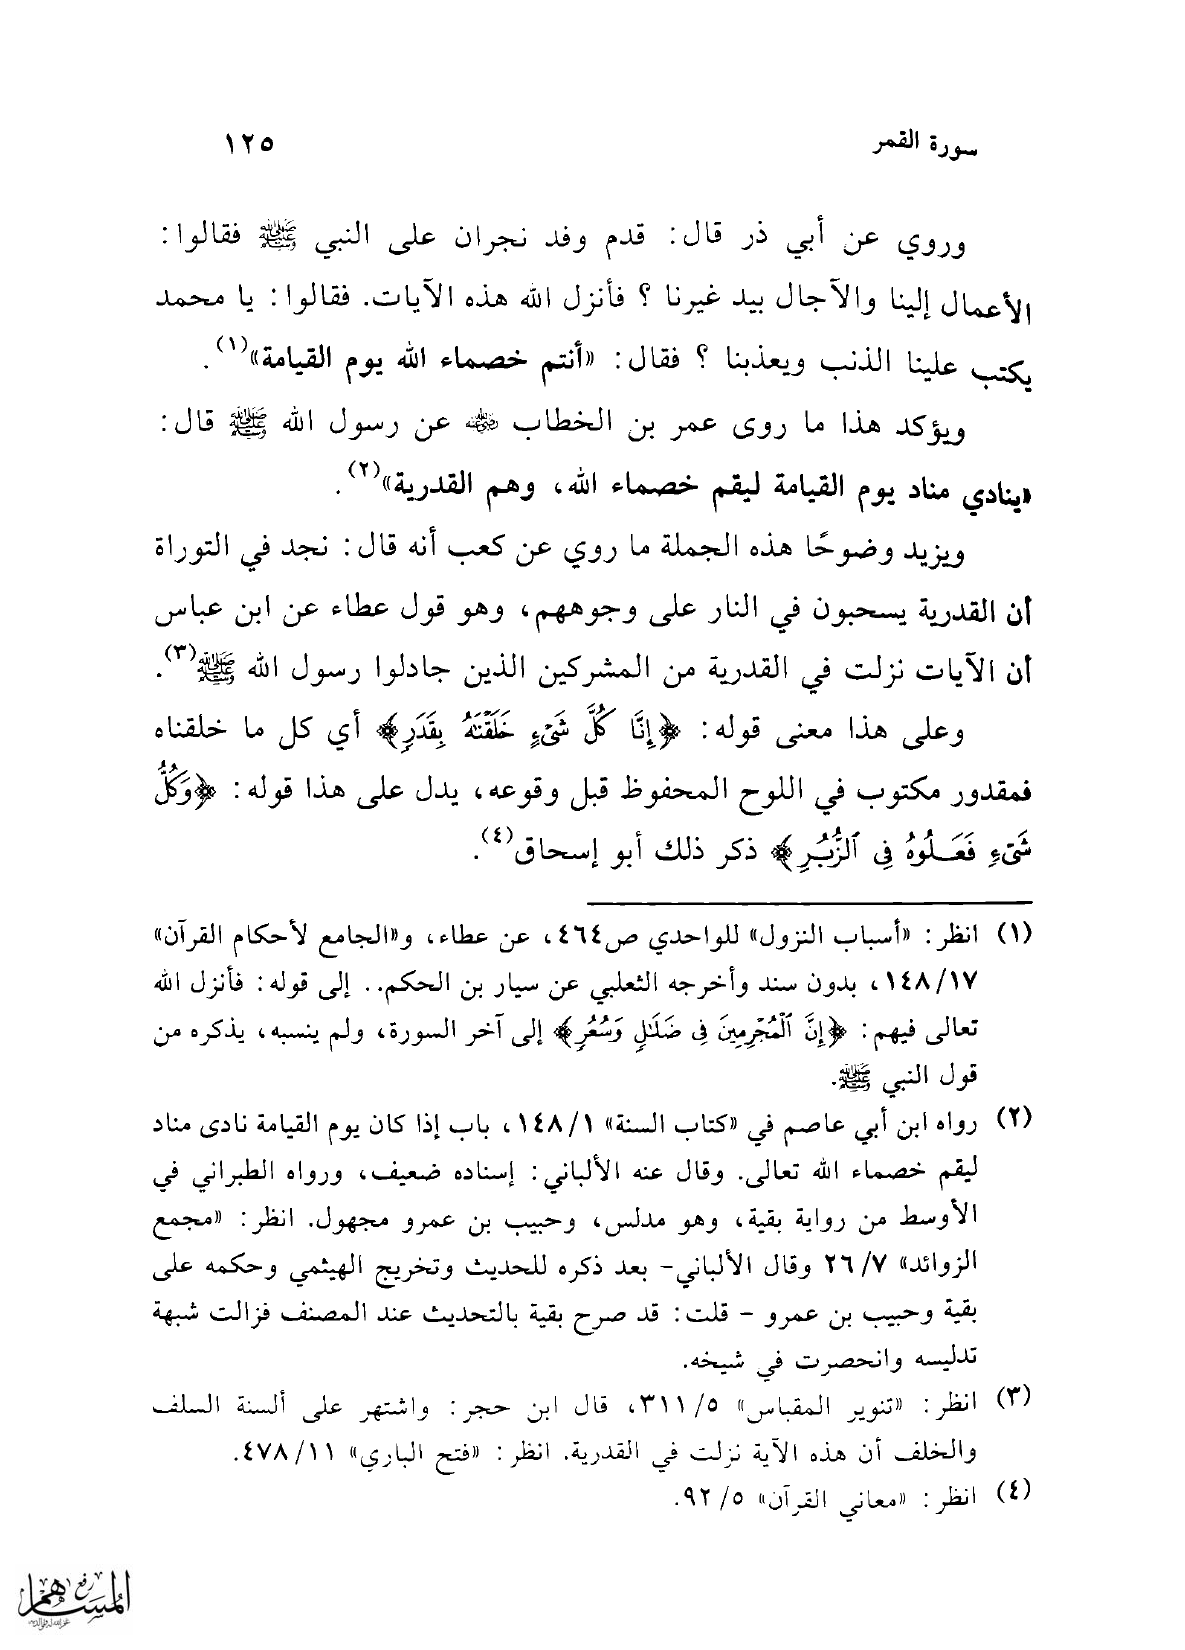 سورة القمر
١٢٥
وروي عن أبي ذر قال: قدم وفد نجران على النبي ﷺ فقالوا:
الأعمال إلينا والآجال بيد غيرنا ؟ فأنزل الله هذه الآيات. فقالوا: يا محمد
يكتب علينا الذنب ويعذبنا ؟ فقال: «أنتم خصماء الله يوم القيامة»(١).
ويؤكد هذا ما روى عمر بن الخطاب رضي الله عنه عن رسول الله ﷺ قال:
«ينادي مناد يوم القيامة ليقم خصماء الله، وهم القدرية»(٢).
ويزيد وضوحًا هذه الجملة ما روي عن كعب أنه قال: نجد في التوراة
أن القدرية يسحبون في النار على وجوههم، وهو قول عطاء عن ابن عباس
أن الآيات نزلت في القدرية من المشركين الذين جادلوا رسول الله ﷺ(٣).
وعلى هذا معنى قوله: ﴿إِنَّا كُلَّ شَىْءٍ خَلَقْنَٰهُ بِقَدَرٍ﴾ أي كل ما خلقناه
فمقدور مكتوب في اللوح المحفوظ قبل وقوعه، يدل على هذا قوله: ﴿وَكُلُّ
شَىْءٍ فَعَلُوهُ فِى ٱلزُّبُرِ﴾ ذكر ذلك أبو إسحاق(٤).
(١) انظر: «أسباب النزول» للواحدي ص٤٦٤، عن عطاء، و«الجامع لأحكام القرآن»
١٤٨/١٧، بدون سند وأخرجه الثعلبي عن سيار بن الحكم.. إلى قوله: فأنزل الله
تعالى فيهم: ﴿إِنَّ ٱلْمُجْرِمِينَ فِى ضَلَٰلٍ وَسُعُرٍ﴾ إلى آخر السورة، ولم ينسبه، يذكره من
قول النبي ﷺ.
(٢) رواه ابن أبي عاصم في «كتاب السنة» ١٤٨/١، باب إذا كان يوم القيامة نادى مناد
ليقم خصماء الله تعالى. وقال عنه الألباني: إسناده ضعيف، ورواه الطبراني في
الأوسط من رواية بقية، وهو مدلس، وحبيب بن عمرو مجهول. انظر: «مجمع
الزوائد» ٢٦/٧ وقال الألباني- بعد ذكره للحديث وتخريج الهيثمي وحكمه على
بقية وحبيب بن عمرو - قلت: قد صرح بقية بالتحديث عند المصنف فزالت شبهة
تدليسه وانحصرت في شيخه.
(٣) انظر: «تنوير المقباس» ٣١١/٥، قال ابن حجر: واشتهر على ألسنة السلف
والخلف أن هذه الآية نزلت في القدرية. انظر: «فتح الباري» ٤٧٨/١١.
(٤) انظر: «معاني القرآن» ٩٢/٥.
رفع
المساهم